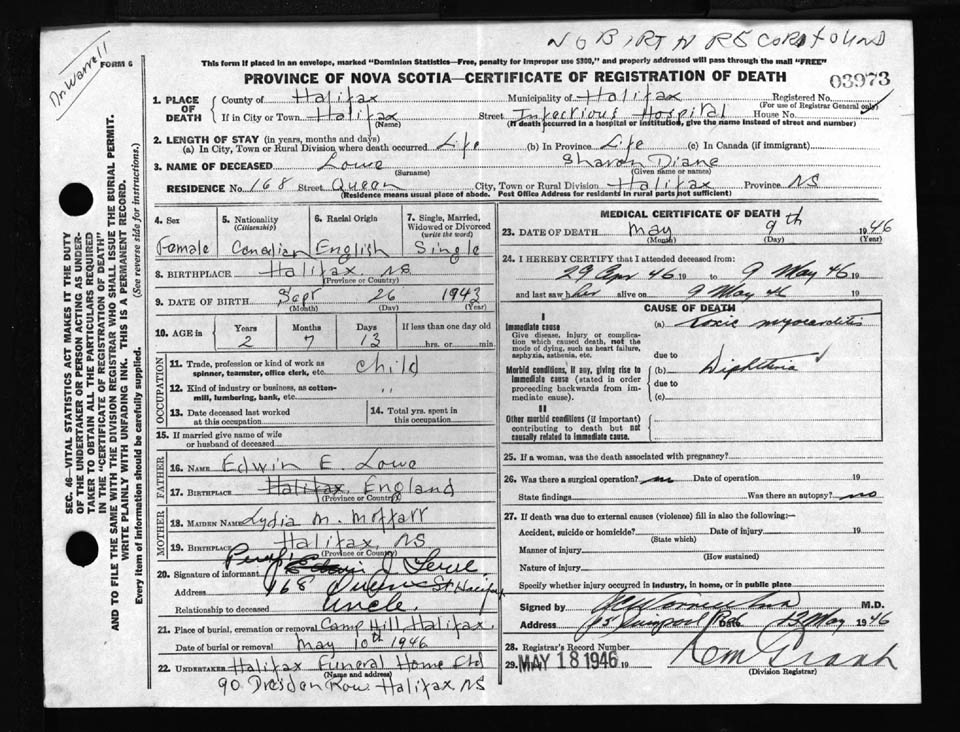 NO BIRTH RECORD FOUND
Dr. Warrell
FORM 6
This form if placed in an envelope, marked "Dominion Statistics—Free, penalty for improper use $300," and properly addressed will pass through the mail "FREE"
PROVINCE OF NOVA SCOTIA—CERTIFICATE OF REGISTRATION OF DEATH
03973
1. PLACE OF DEATH
County of Halifax Municipality of Halifax Registered No.
(For use of Registrar General only)
If in City or Town Halifax Street Infectious Hospital House No.
(Name) (If death occurred in a hospital or institution, give the name instead of street and number)
2. LENGTH OF STAY (in years, months and days)
(a) In City, Town or Rural Division where death occurred Life (b) In Province Life (c) In Canada (if immigrant)
3. NAME OF DECEASED Lowe Sharon Diane
(Surname) (Given name or names)
RESIDENCE No. 168 Street Queen City, Town or Rural Division Halifax Province NS
(Residence means usual place of abode. Post Office Address for residents in rural parts not sufficient)
SEC. 46—VITAL STATISTICS ACT MAKES IT THE DUTY
OF THE UNDERTAKER OR PERSON ACTING AS UNDER-
TAKER TO OBTAIN ALL THE PARTICULARS REQUIRED
IN THE "CERTIFICATE OF REGISTRATION OF DEATH"
AND TO FILE THE SAME WITH THE DIVISION REGISTRAR WHO SHALL ISSUE THE BURIAL PERMIT.
WRITE PLAINLY WITH UNFADING INK. THIS IS A PERMANENT RECORD.
Every item of information should be carefully supplied. (See reverse side for instructions.)
4. Sex
Female
5. Nationality
(Citizenship)
Canadian
6. Racial Origin
English
7. Single, Married,
Widowed or Divorced
(write the word)
Single
8. BIRTHPLACE Halifax, NS
(Province or Country)
9. DATE OF BIRTH Sept 26 1943
(Month) (Day) (Year)
10. AGE in Years Months Days If less than one day old
2 7 13 hrs. or min.
OCCUPATION
11. Trade, profession or kind of work as
spinner, teamster, office clerk, etc. Child
12. Kind of industry or business, as cotton-
mill, lumbering, bank, etc. "
13. Date deceased last worked
at this occupation
14. Total yrs. spent in
this occupation
15. If married give name of wife
or husband of deceased
FATHER
16. NAME Edwin E. Lowe
17. BIRTHPLACE Halifax, England
(Province or Country)
MOTHER
18. MAIDEN NAME Lydia M. Moffatt
19. BIRTHPLACE Halifax, NS
(Province or Country)
20. Signature of informant
Address 168 Queen St Halifax
Relationship to deceased Uncle.
21. Place of burial, cremation or removal Camp Hill, Halifax,
Date of burial or removal May 10th 1946
22. UNDERTAKER Halifax Funeral Home Ltd
(Name and address)
90 Dresden Row Halifax, NS
MEDICAL CERTIFICATE OF DEATH
23. DATE OF DEATH May 9th 1946
(Month) (Day) (Year)
24. I HEREBY CERTIFY that I attended deceased from:
29 Apr 46 19 to 9 May 46 19
and last saw her alive on 9 May 46 19
CAUSE OF DEATH
I
Immediate cause
Give disease, injury or complica-
tion which caused death, not the
mode of dying, such as heart failure,
asphyxia, asthenia, etc.
(a) toxic myocarditis
due to
Morbid conditions, if any, giving rise to
immediate cause (stated in order
proceeding backwards from im-
mediate cause).
(b) Diphtheria
due to
(c)
II
Other morbid conditions (if important)
contributing to death but not
causally related to immediate cause.
25. If a woman, was the death associated with pregnancy?
26. Was there a surgical operation? no Date of operation 19
State findings Was there an autopsy? no
27. If death was due to external causes (violence) fill in also the following:—
Accident, suicide or homicide? Date of injury 19
(State which)
Manner of injury
(How sustained)
Nature of injury
Specify whether injury occurred in industry, in home, or in public place
Signed by M.D.
Address Date 13 May 1946
28. Registrar's Record Number
29. MAY 18 1946 19
(Division Registrar)